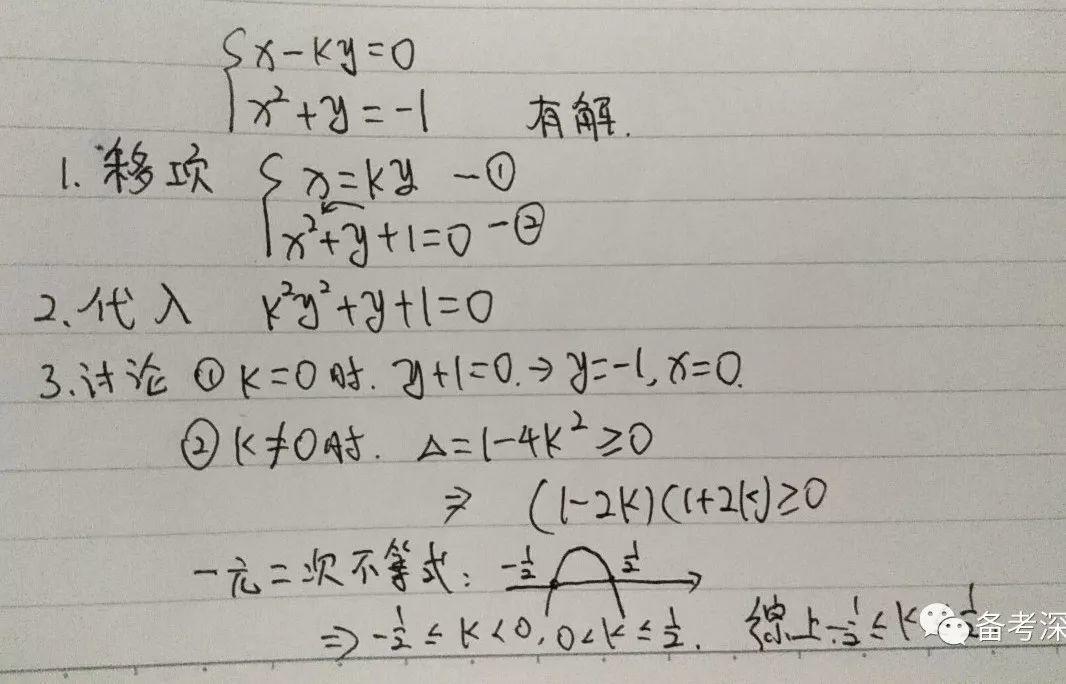 {x-ky=0
x²+y=-1 有解.
1.移项 {x=ky -①
x²+y+1=0 -②
2.代入 k²y²+y+1=0
3.讨论 ① k=0时. y+1=0.→y=-1,x=0.
② k≠0时. Δ=1-4k²≥0
⇒ (1-2k)(1+2k)≥0
一元二次不等式: -1/2 1/2
⇒ -1/2≤k<0, 0<k≤1/2. 综上-1/2≤k 1/2
备考深